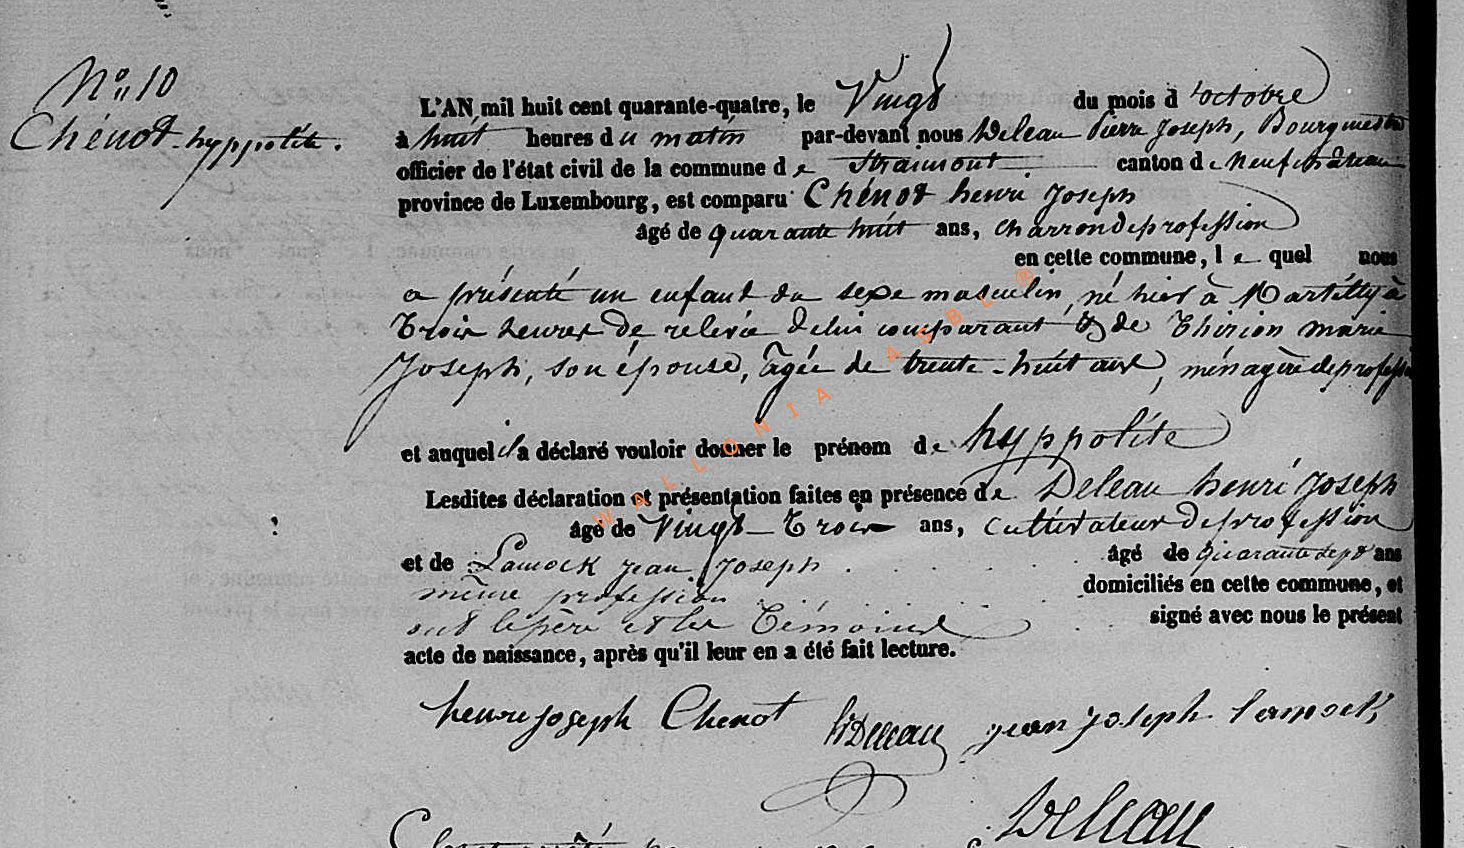 N° 10
Chénot hyppolite.
L'AN mil huit cent quarante-quatre, le Vingt du mois d'octobre
à huit heures du matin par-devant nous Deleau Pierre Joseph, Bourgmestre
officier de l'état civil de la commune de Straimont canton de Neufchâteau
province de Luxembourg, est comparu Chénot henri Joseph
âgé de quarante huit ans, charron de profession
en cette commune, lequel nous
a présenté un enfant du sexe masculin, né hier à Martilly à
trois heures de relevée de lui comparant & de Thirion marie
Joseph, son épouse, âgée de trente-huit ans, ménagère de profession
et auquel il a déclaré vouloir donner le prénom de hyppolite
Lesdites déclaration et présentation faites en présence de Deleau henri Joseph
âgé de Vingt-trois ans, cultivateur de profession
et de Lamock jean Joseph âgé de quarante sept ans
même profession domiciliés en cette commune, et
ont le père et les témoins signé avec nous le présent
acte de naissance, après qu'il leur en a été fait lecture.
henri joseph Chenot hDeleau jean joseph lamock
Deleau
WALLONIA ASBL ®